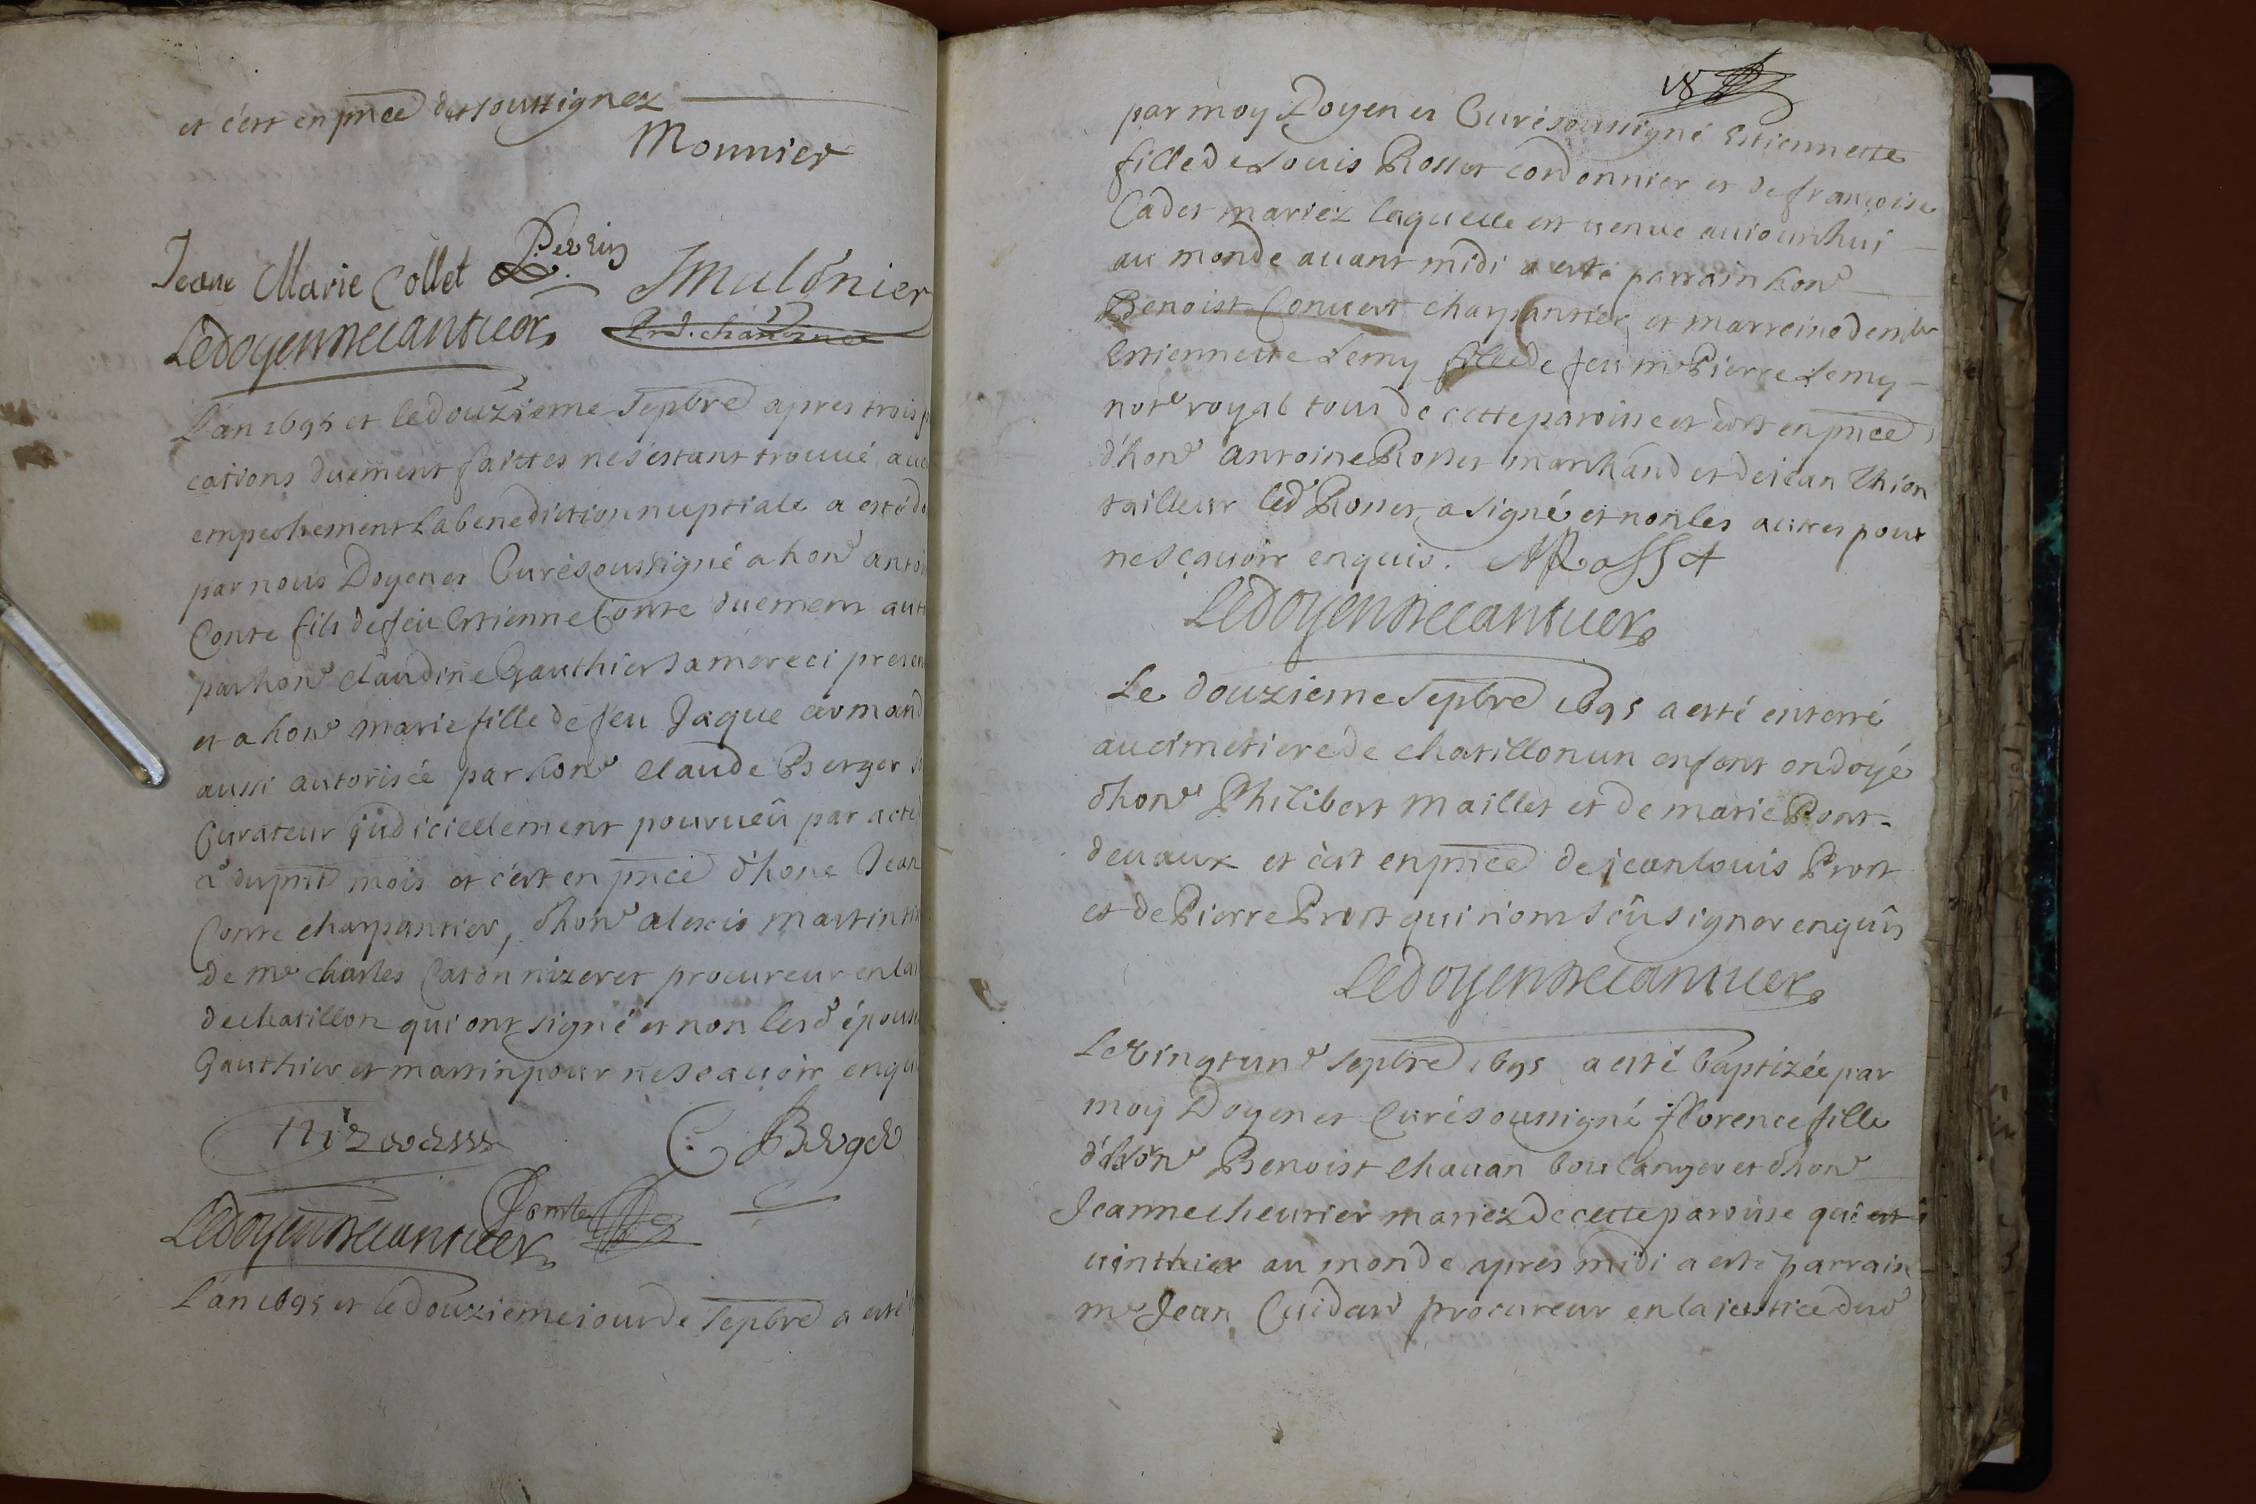 et c'est en pnce des soussignez
Monnier
Jeane Marie Collet Perrin
J Mulonier
Ledoyen
L'an 1695 et le douzieme Sepbre apres trois p
cations duement faittes ne s'estant trouué auc
empeshement La benediction nuptiale a esté do
par nous Doyen et Curé soussigné a honc anto
Conte fils de feu Estienne Conte duement aut
par honc claudine Gauthier sa mere ci presen
et a honc marie fille de feu Jaque armand
aussi autorisée par honc claude Berger
Curateur judiciellement pourueû par acte
du pnt mois et c'est en pnce d'honc Jean
Conte charpantier, d'honc alexis martin
de me charles Caton nizeret procureur en la
de chatillon qui ont signé et non lesd épous
Gauthier et martin pour ne scauoir enqui
C. Berger
Comte
Ledoyen
L'an 1695 et le douzieme iour de Sepbre a esté
18
par moy Doyen et Curé soussigné Estiennette
fille de Louis Rosset cordonnier et de françoise
Cadet mariez laquelle est uenue auiourdhui
au monde auant midi a esté parrain honc
Benoist Conuert charpantier et marreine demlle
Estiennette Lemy fille de feu me Pierre Lemy
note royal tous de cette paroisse et c'est en pnce
d'honc antoine Rosset marchand et de jean Thion
tailleur led Rosset a signé et non les autres pour
ne scauoir enquis. A Rosset
Ledoyen
Le douzieme Sepbre 1695 a esté enterré
au cimetiere de chatillon un enfant ondoyé
d'honc Philibert Maillet et de marie Pont-
deuaux et c'est en pnce de jean louis Prost
et de Pierre Prost qui n'ont sceu signer enquis
Ledoyen
Le vingt une Sepbre 1695 a esté baptizée par
moy Doyen et Curé soussigné florence fille
d'honc Benoist Chauan boulanger et d'honc
Jeanne cheurier mariez de cette paroisse qui
uint hier au monde apres midi a esté parrain
me Jean Cuidard procureur en la justice dud